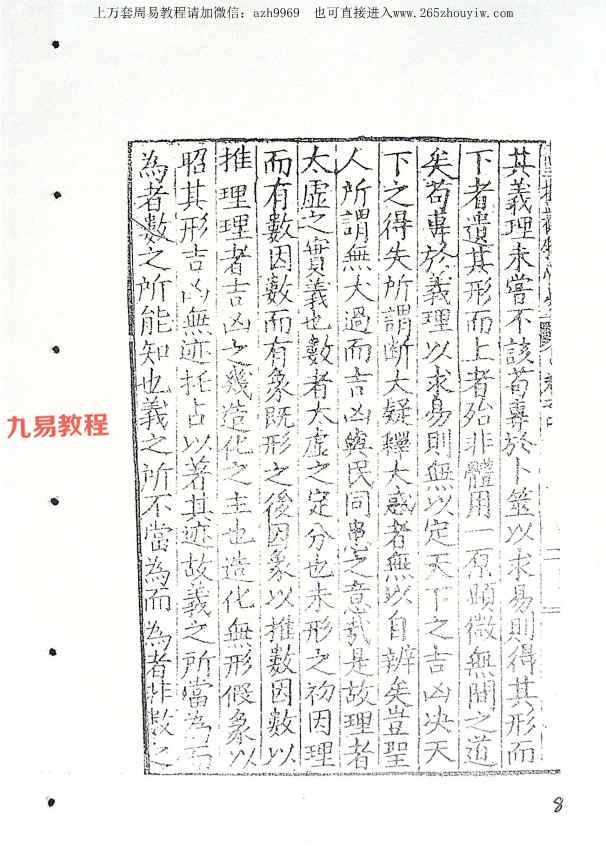 上万套周易教程请加微信：azh9969 也可直接进入www.265zhouyiw.com
其義理未嘗不該苟專於卜筮以求易則得其形而
下者遺其形而上者殆非體用一原顯微無間之道
矣苟專於義理以求易則無以定天下之吉凶決天
下之得失所謂断大疑釋大惑者無以自辨矣豈聖
人所謂無大過而吉凶與民同患之意哉是故理者
太虛之實義也數者太虛之定分也未形之初因理
而有數因數而有象既形之後因象以推數因數以
推理理者吉凶之幾造化之主也造化無形假象以
昭其形吉凶無迹托占以著其迹故義之所當為而
為者數之所能知也義之所不當為而為者非數之
九易教程
8